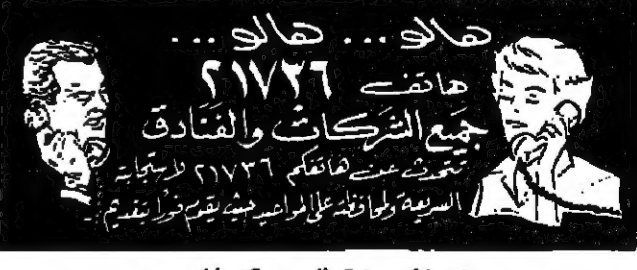 هالو ... هالو ...
هاتف ٢١٧٣٦
جميع الشركات والفنادق
تتحدث عن هاتفكم ٢١٧٣٦ لاستجابته
السريعة ولمحافظته على المواعيد حيث يقوم فورًا بتقديم :